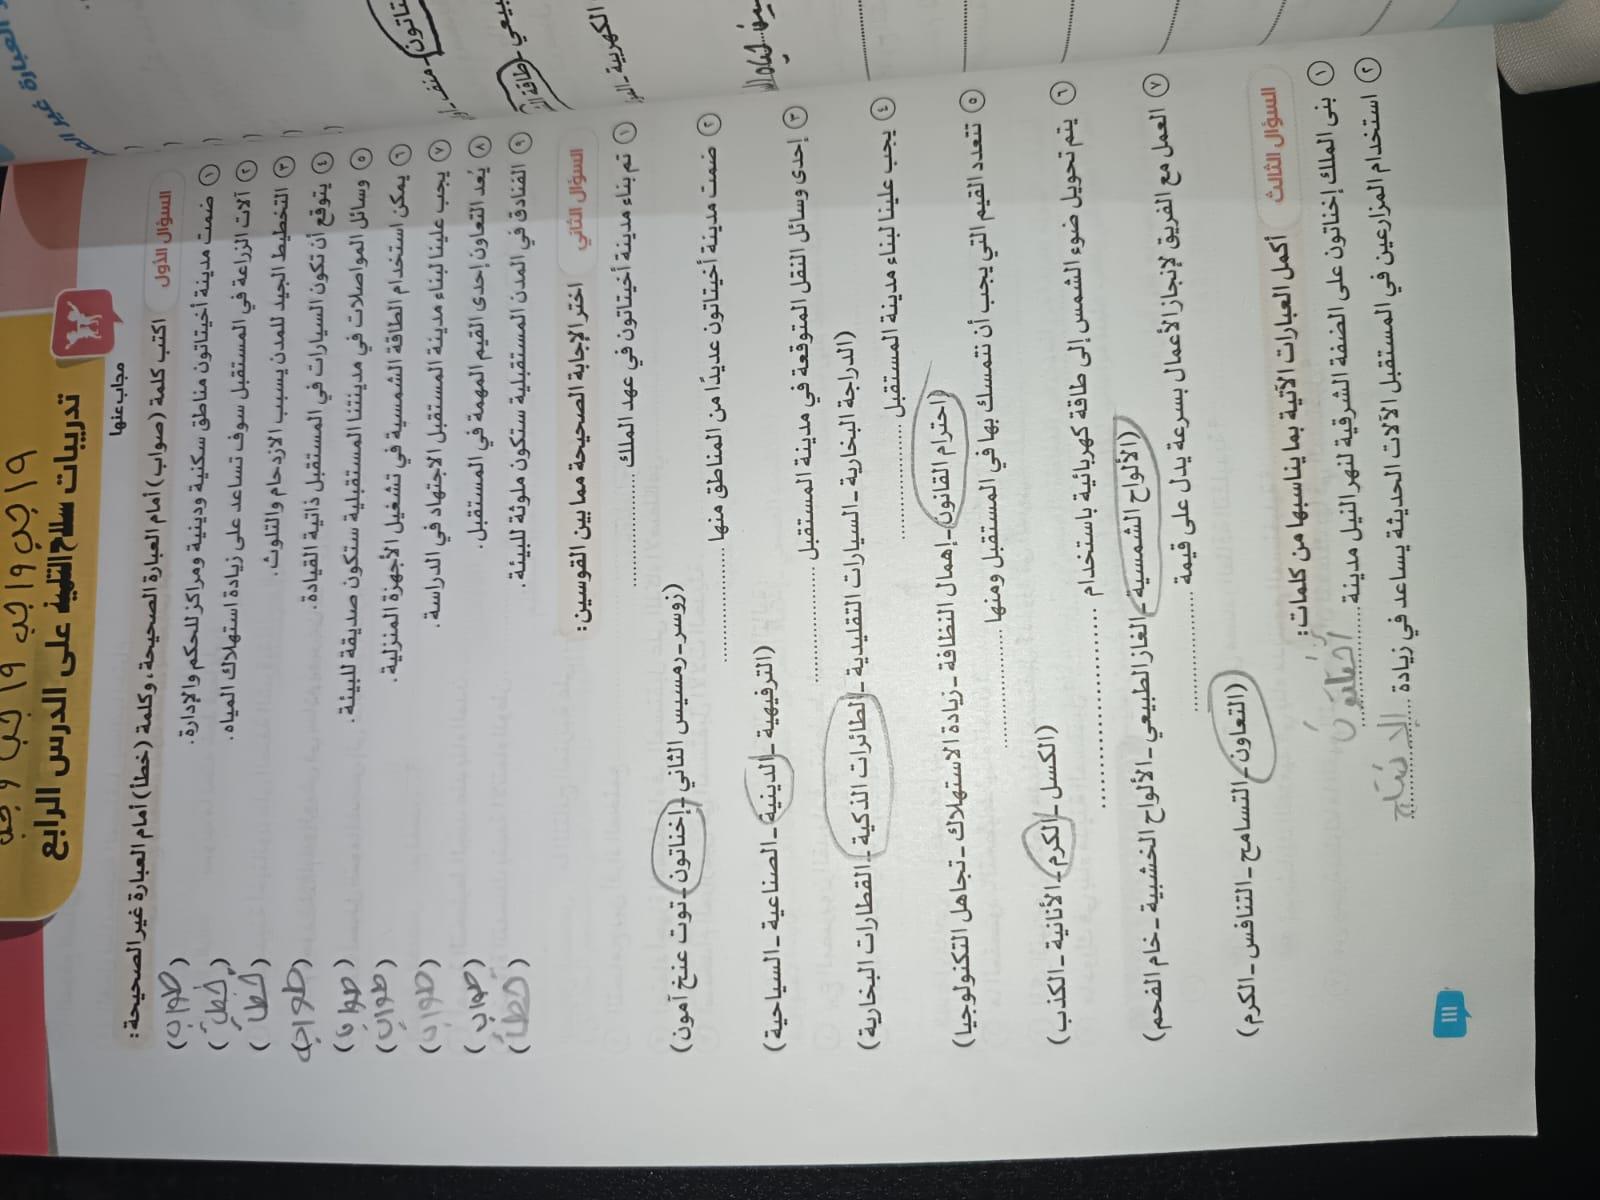 واجب واجب واجب واجب
تدريبات سلاح التلميذ على الدرس الرابع
مجاب عنها
السؤال الأول اكتب كلمة (صواب) أمام العبارة الصحيحة، وكلمة (خطأ) أمام العبارة غير الصحيحة:
١ ضمت مدينة أخيتاتون مناطق سكنية ودينية ومراكز للحكم والإدارة. (صواب)
٢ آلات الزراعة في المستقبل سوف تساعد على زيادة استهلاك المياه. (خطأ)
٣ التخطيط الجيد للمدن يسبب الازدحام والتلوث. (خطأ)
٤ يتوقع أن تكون السيارات في المستقبل ذاتية القيادة. (صواب)
٥ وسائل المواصلات في مدينتنا المستقبلية ستكون صديقة للبيئة. (صواب)
٦ يمكن استخدام الطاقة الشمسية في تشغيل الأجهزة المنزلية. (صواب)
٧ يجب علينا لبناء مدينة المستقبل الاجتهاد في الدراسة. (صواب)
٨ يُعد التعاون إحدى القيم المهمة في المستقبل. (صواب)
٩ الفنادق في المدن المستقبلية ستكون ملوثة للبيئة. (خطأ)
السؤال الثاني اختر الإجابة الصحيحة مما بين القوسين:
١ تم بناء مدينة أخيتاتون في عهد الملك ..............
(زوسر - رمسيس الثاني - إخناتون - توت عنخ آمون)
٢ ضمت مدينة أخيتاتون عديدًا من المناطق منها ..............
(الترفيهية - الدينية - الصناعية - السياحية)
٣ إحدى وسائل النقل المتوقعة في مدينة المستقبل ..............
(الدراجة البخارية - السيارات التقليدية - الطائرات الذكية - القطارات البخارية)
٤ يجب علينا لبناء مدينة المستقبل ..............
(احترام القانون - إهمال النظافة - زيادة الاستهلاك - تجاهل التكنولوجيا)
٥ تتعدد القيم التي يجب أن نتمسك بها في المستقبل ومنها ..............
(الكسل - الكرم - الأنانية - الكذب)
٦ يتم تحويل ضوء الشمس إلى طاقة كهربائية باستخدام ..............
(الألواح الشمسية - الغاز الطبيعي - الألواح الخشبية - خام الفحم)
٧ العمل مع الفريق لإنجاز الأعمال بسرعة يدل على قيمة ..............
(التعاون - التسامح - التنافس - الكرم)
السؤال الثالث أكمل العبارات الآتية بما يناسبها من كلمات:
١ بنى الملك إخناتون على الضفة الشرقية لنهر النيل مدينة أخيتاتون
٢ استخدام المزارعين في المستقبل الآلات الحديثة يساعد في زيادة الإنتاج
١١١